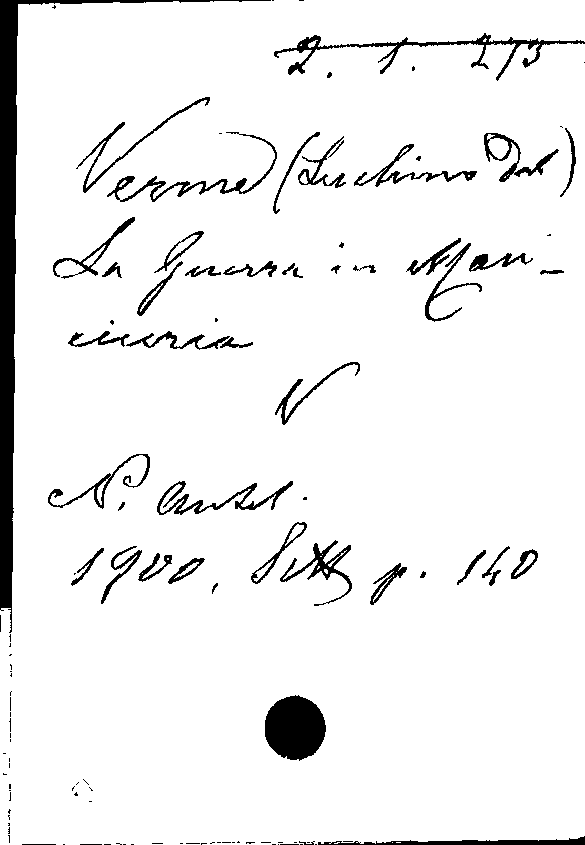 2. 1. 273
Verme (Luchino Dal)
La Guerra in Man-
ciuria
V
N. Antol.
1900, Sett p. 140